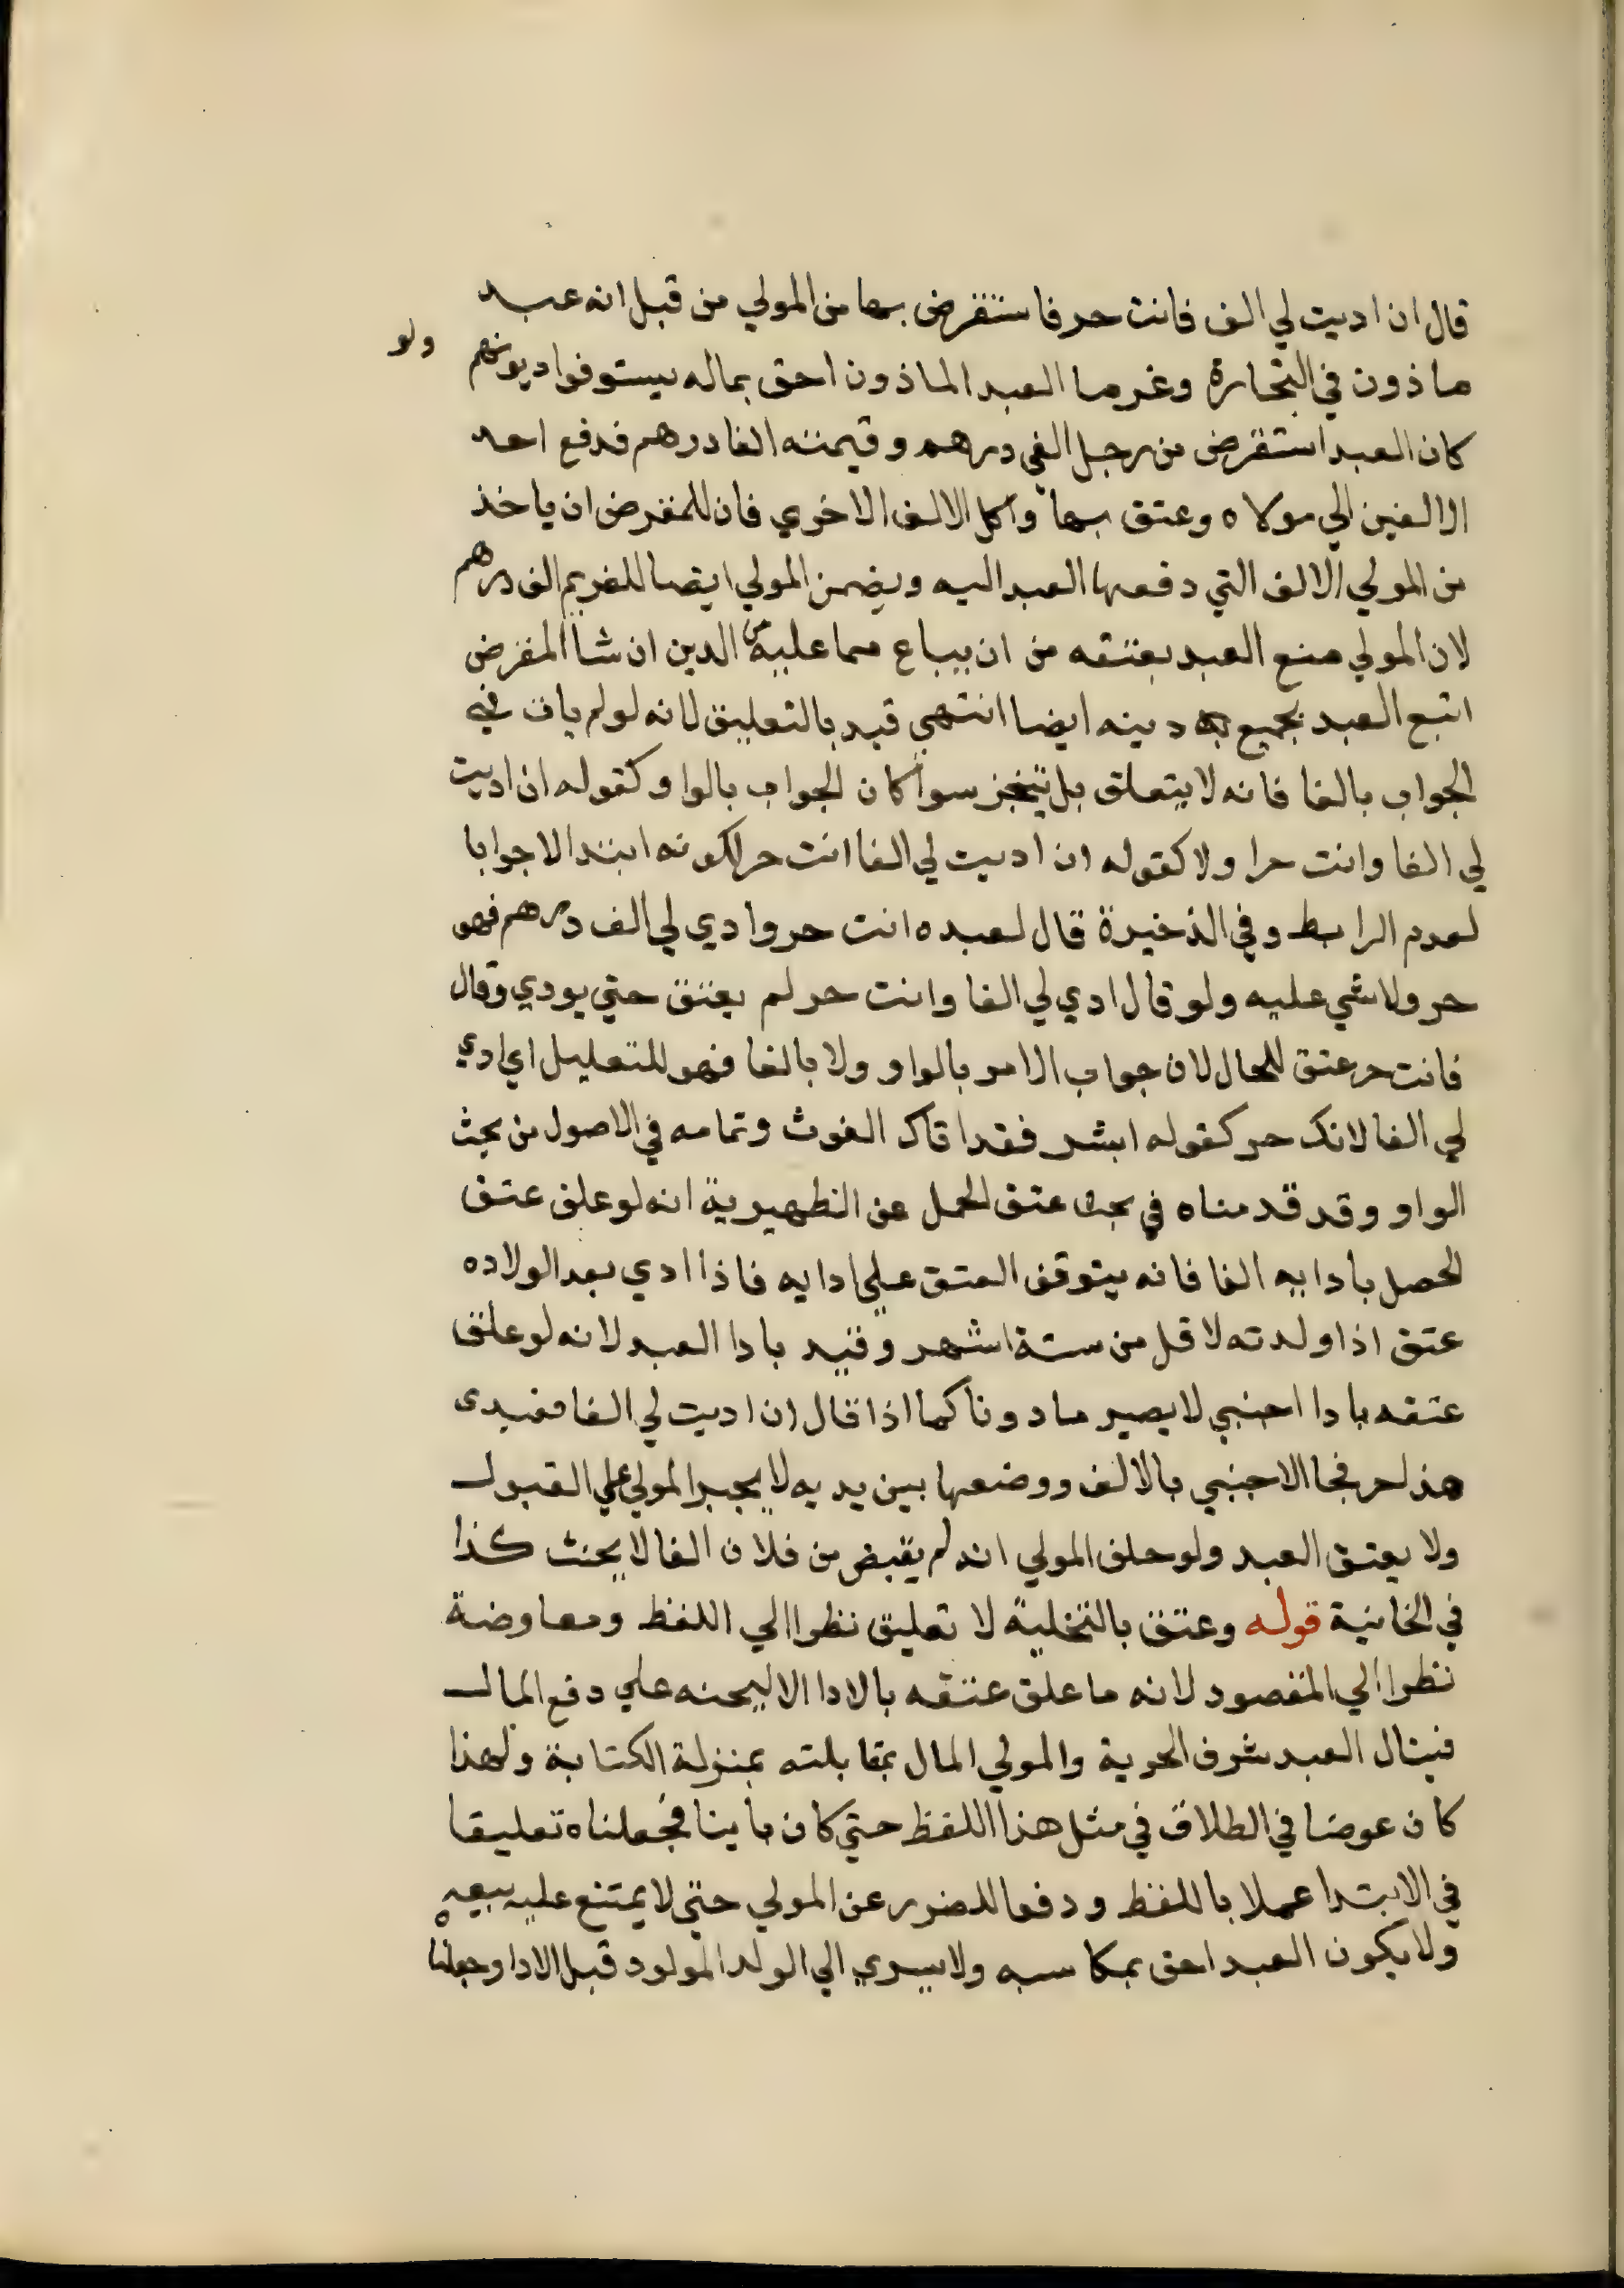 قال ان اديت لي الف فانت حر فاستقرض بها من المولي من قبل انه عبد
ماذون في التجارة وغرما العبد الماذون احق بماله يستوفوا ديونهم ولو
كان العبد استقرض من رجل الفي درهم وقيمته الفا درهم فدفع احد
الالفين الي مولاه وعتق بها واكل الالف الاخري فان للمقرض ان ياخذ
من المولي الالف التي دفعها العبد اليه ويضمن المولي ايضا للغريم الف درهم
لان المولي منع العبد بعتقه من ان يباع مما عليه من الدين ان شا المقرض
اتبع العبد بجميع دينه ايضا انتهي قيد بالتعليق لانه لو لم يات في
الجواب بالفا فانه لا يتعلق بل يتنجز سوا كان الجواب بالواو كقوله ان اديت
لي الفا وانت حرا ولا كقوله ان اديت لي الفا انت حر لكونه ابتدا لا جوابا
لعدم الرابط وفي الذخيرة قال لعبده انت حر وادي لي الف درهم فهو
حر ولا شي عليه ولو قال ادي لي الفا وانت حر لم يعتق حتي يودي وقال
فانت حر عتق للحال لان جواب الامر بالواو ولا بالفا فهو للتعليل اي ادي
لي الفا لانك حر كقوله ابشر فقد اتاك الغوث وتمامه في الاصول من بحث
الواو وقد قدمناه في بحث عتق الحمل عن الظهيرية انه لو علق عتق
الحصل بادايه الفا فانه يتوقف العتق علي ادايه فاذا ادي بعد الولاده
عتق اذا ولدته لاقل من ستة اشهر وقيد بادا العبد لانه لو علق
عتقه بادا اجنبي لا يصير مادونا كما اذا قال ان اديت لي الفا فعبدى
هذا حر فجا الاجنبي بالالف ووضعها بين يديه لا يجبر المولي علي القبول
ولا يعتق العبد ولو حلف المولي انه لم يقبض من فلان الفا لا يحنث كذا
في الخانية قوله وعتق بالتخلية لا تعليق نظرا الي اللفظ ومعاوضة
نظرا الي المقصود لانه ما علق عتقه بالادا الا ليحثه علي دفع المال
فينال العبد شرف الحرية والمولي المال بمقابلته بمنزلة الكتابة ولهذا
كان عوضا في الطلاق في مثل هذا اللفظ حتي كان باينا فجعلناه تعليقا
في الابتدا عملا باللفظ ودفعا للضرر عن المولي حتي لا يمتنع عليه بيعه
ولا يكون العبد احق بمكاسبه ولا يسري الي الولد المولود قبل الادا وجعلنا